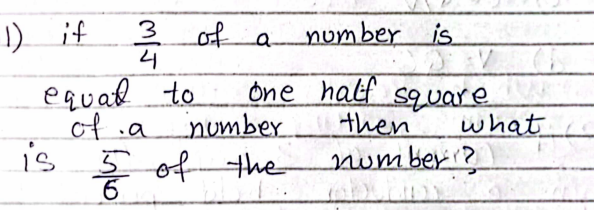 1) if 3/4 of a number is
equal to one half square
of a number then what
is 5/6 of the number?